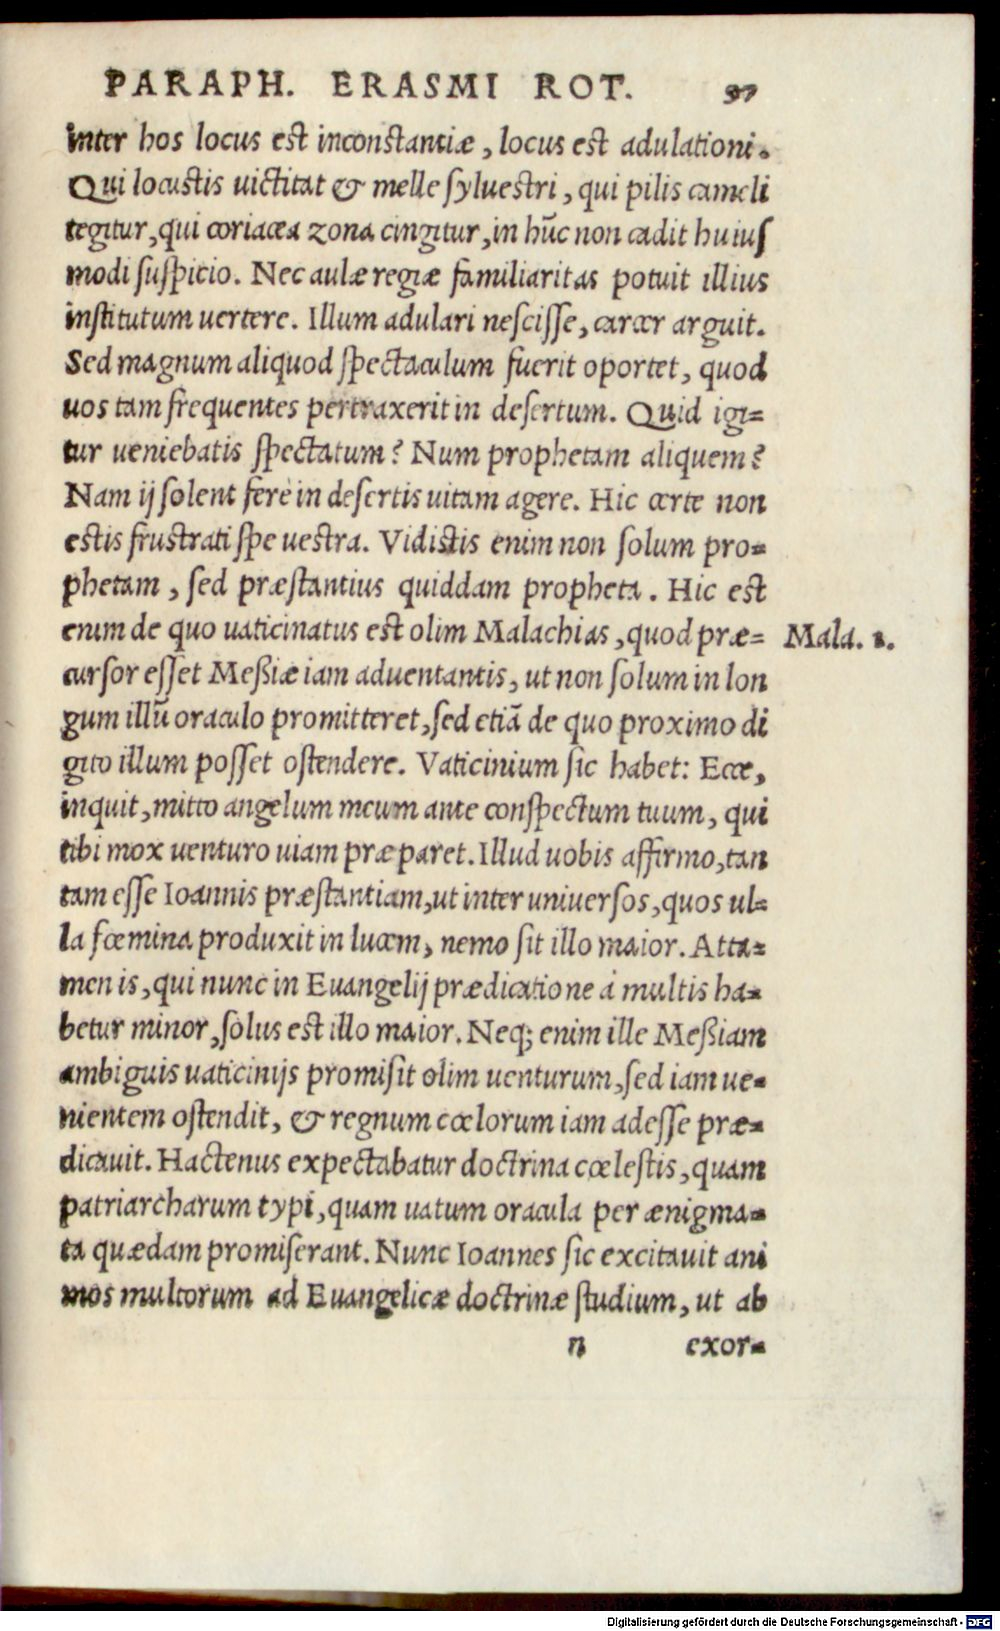 PARAPH. ERASMI ROT. 97
inter hos locus est inconstantiæ, locus est adulationi.
Qui locustis uictitat & melle syluestri, qui pilis cameli
tegitur, qui coriacea zona cingitur, in hūc non cadit huius
modi suspicio. Nec aulæ regiæ familiaritas potuit illius
institutum uertere. Illum adulari nescisse, carcer arguit.
Sed magnum aliquod spectaculum fuerit oportet, quod
uos tam frequentes pertraxerit in desertum. Quid igi=
tur ueniebatis spectatum? Num prophetam aliquem?
Nam ij solent ferè in desertis uitam agere. Hic certe non
estis frustrati spe uestra. Vidistis enim non solum pro=
phetam, sed præstantius quiddam propheta. Hic est
enim de quo uaticinatus est olim Malachias, quod præ= Mala. 3.
cursor esset Meßiæ iam aduentantis, ut non solum in lon
gum illū oraculo promitteret, sed etiā de quo proximo di
gito illum posset ostendere. Vaticinium sic habet: Ecce,
inquit, mitto angelum meum ante conspectum tuum, qui
tibi mox uenturo uiam præparet. Illud uobis affirmo, tan
tam esse Ioannis præstantiam, ut inter uniuersos, quos ul=
la fœmina produxit in lucem, nemo sit illo maior. Atta=
men is, qui nunc in Euangelij prædicatione à multis ha=
betur minor, solus est illo maior. Neq; enim ille Meßiam
ambiguis uaticinijs promisit olim uenturum, sed iam ue=
nientem ostendit, & regnum cœlorum iam adesse præ=
dicauit. Hactenus expectabatur doctrina cœlestis, quam
patriarcharum typi, quam uatum oracula per ænigma=
ta quædam promiserant. Nunc Ioannes sic excitauit ani
mos multorum ad Euangelicæ doctrinæ studium, ut ab
n exor=
Digitalisierung gefördert durch die Deutsche Forschungsgemeinschaft - DFG